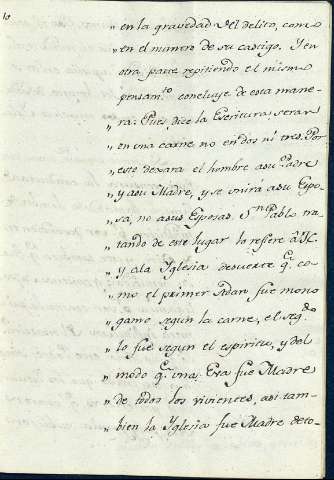 10
" en la gravedad del delito, como
" en el numero de su castigo. Y en
" otra parte repitiendo el mismo
" pensam.to concluye de esta mane-
" ra: Pues dice la Escritura: seran
" en una carne no en dos ni tres. Por
" este dexara el hombre a su Padre
" y a su Madre, y se unira a su Espo-
" sa, no a sus Esposas. S.n Pablo tra-
" tando de este lugar lo refiere â
" y a la Yglesia desuerte q.e co-
" mo el primer Adan fue mono
" gamo segun la carne, el seg.do
" lo fue segun el espiritu, y del
" modo q.e una Eva fue Madre
" de todos los vivientes, asi tam-
" bien la Yglesia fue Madre de to-